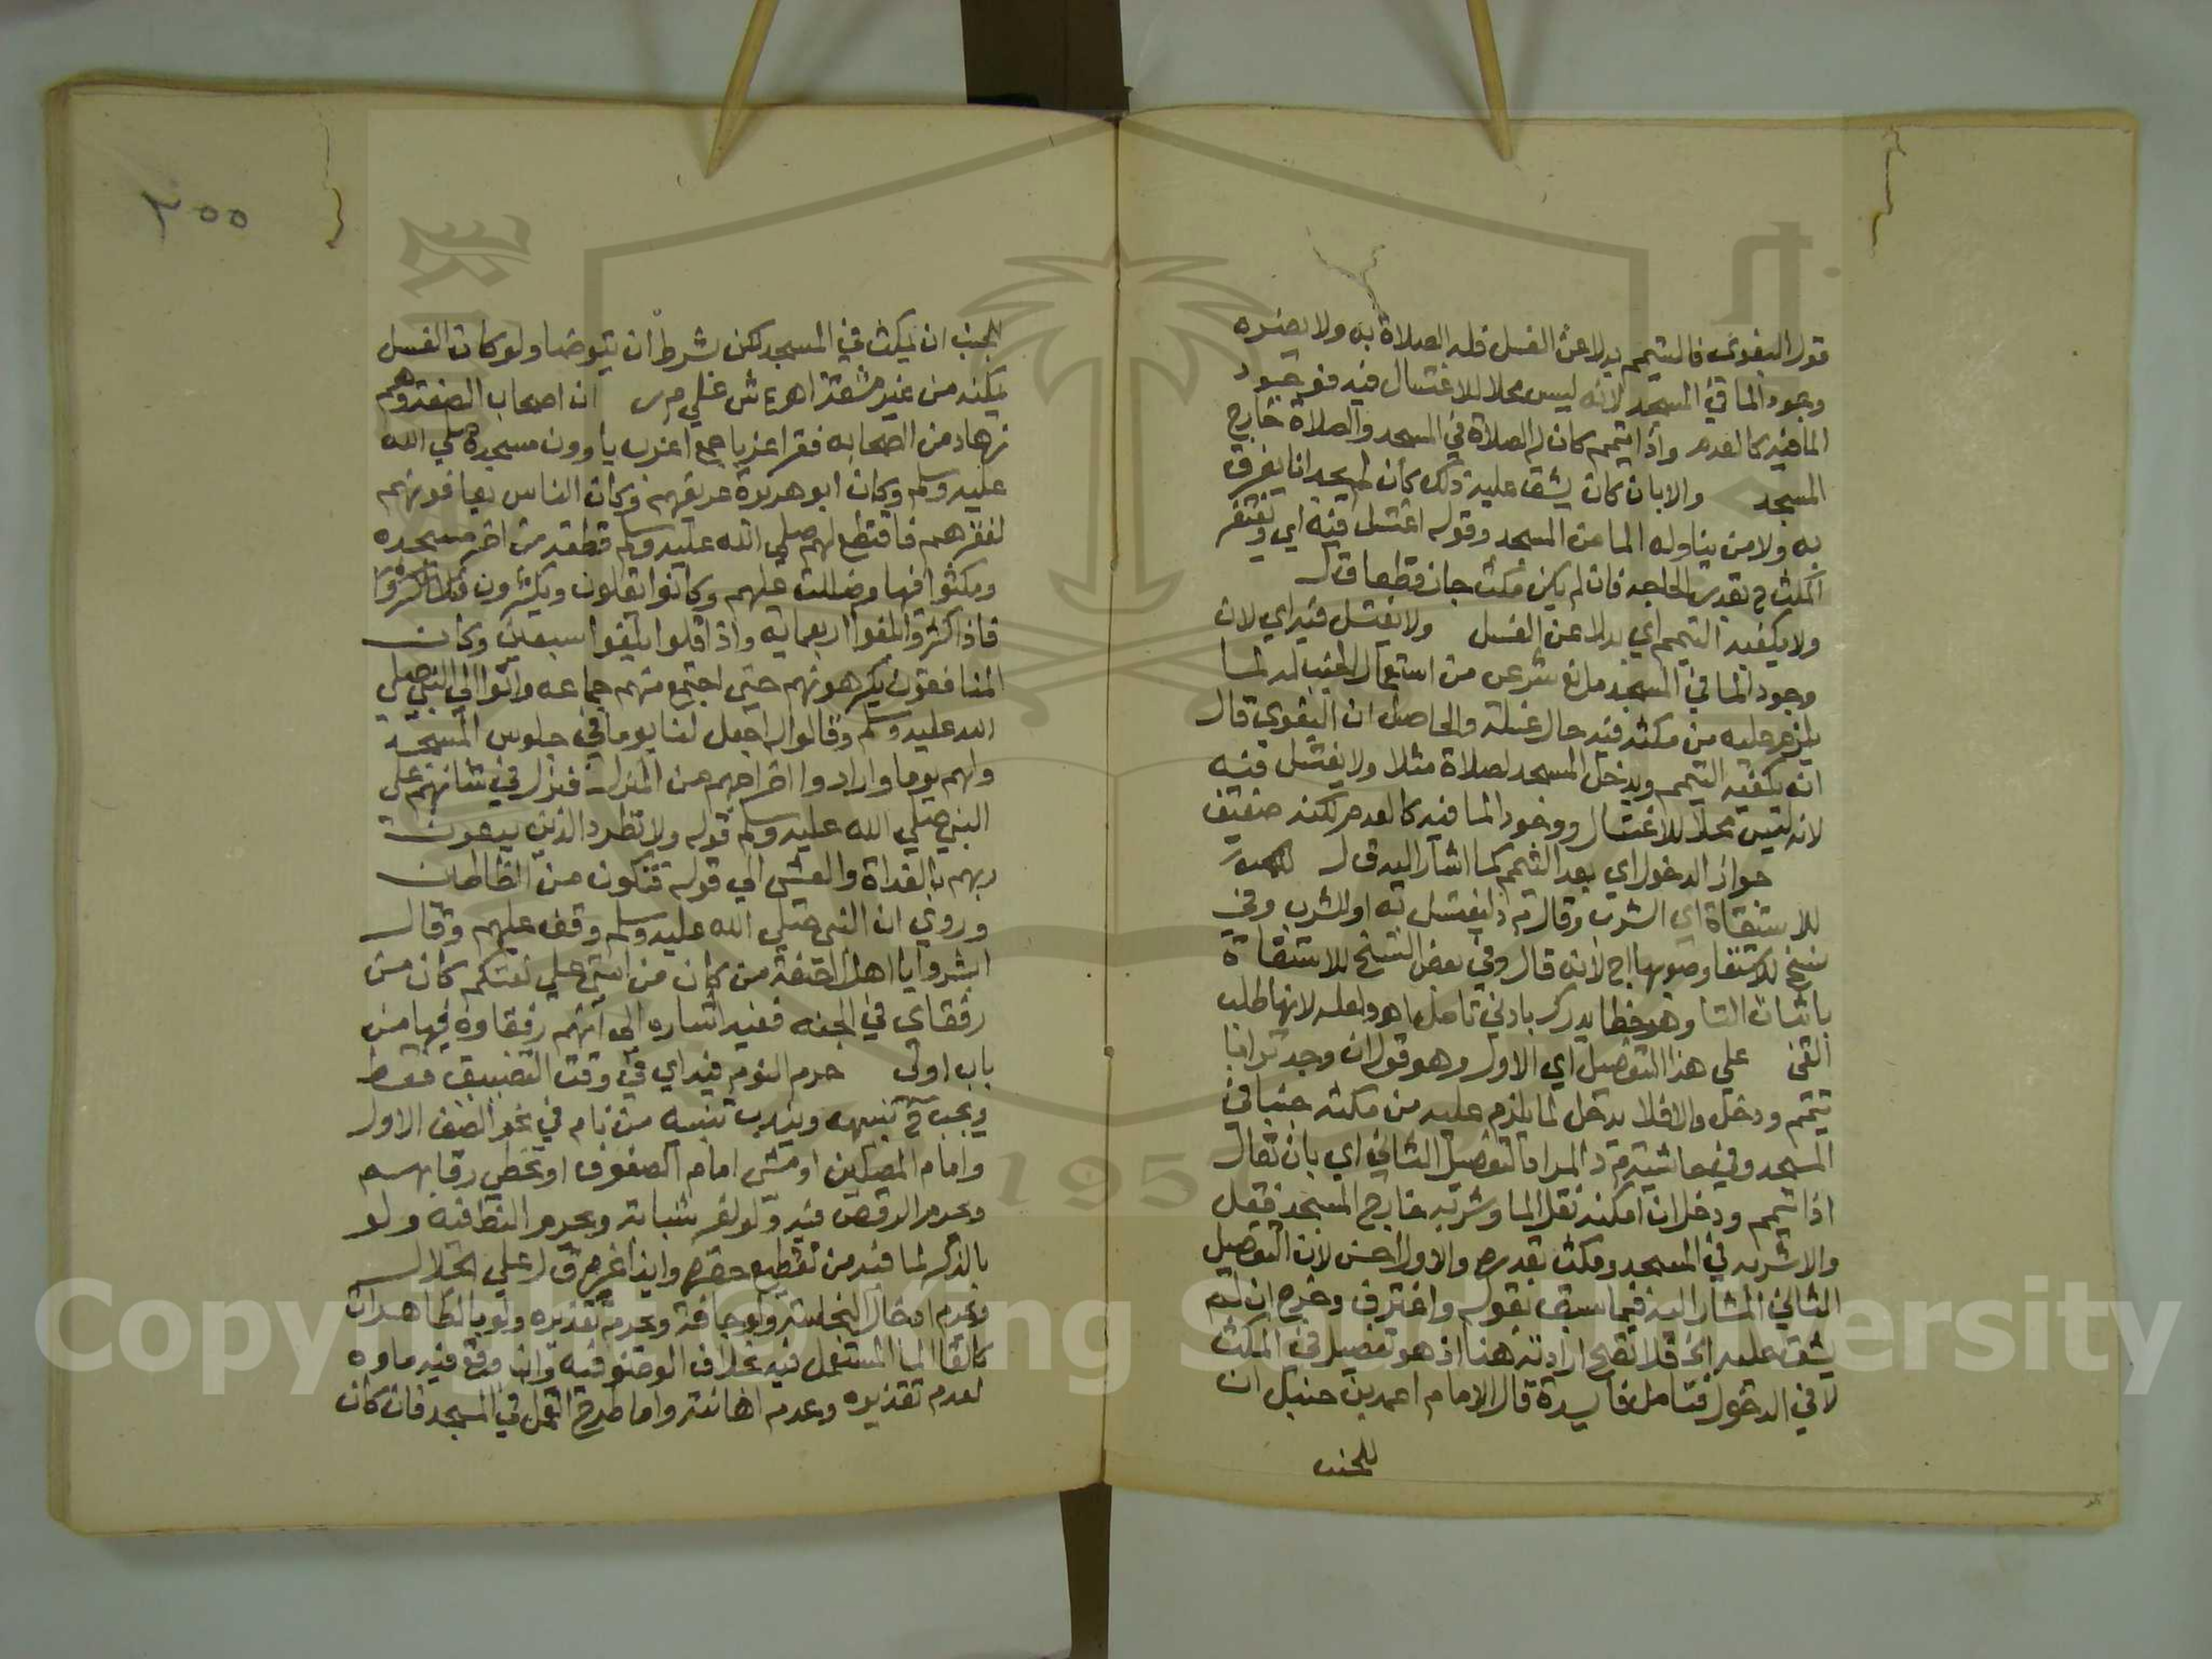 قول البغوى فالتيمم بدلا عن الغسل فله الصلاة به ولا يضره
وجود الما في المسجد لانه ليس محلا للاغتسال فيه فوجود
الما فيه كالعدم واذا تيمم كان له الصلاة في المسجد والصلاة خارج
المسجد والا بان كان يشق عليه ذلك كان لم يجد انا يغرف
به ولا من يناوله الما من المسجد وقوله اغتسل فيه اي ويغتفر
المكث بقدر الحاجه فان لم يكن مكث جاز قطعا ق ل
ولا يكفيه التيمم اي بدلا عن الغسل ولا يغتسل فيه اي لان
وجود الما في المسجد مانع شرعى من استعمال الجنب له لما
يلزم عليه من مكثه فيه حال غسله والحاصل ان البغوى قال
انه يكفيه التيمم ويدخل المسجد لصلاة مثلا ولا يغتسل فيه
لانه ليس محلا للاغتسال ووجود الما فيه كالعدم لكنه ضعيف
جواز الدخول اي بعد التيمم كما اشار اليه ق ل
للاستقاة اي الشرب وقال م د ليغتسل به او للشرب وفي
نسخ للاستقا وصوبها اج لانه قال وفي بعض النسخ للاستقاة
باثبات التا وهو خطا يدرك بادني تامل اهـ ولعله لانها طلب
القى على هذا التفصيل اي الاول وهو قوله ان وجد ترابا
تيمم ودخل والا فلا يدخل لما يلزم عليه من مكثه جنبا في
المسجد وفي حاشية م د المراد التفصيل الثاني اي بان يقال
اذا تيمم ودخل ان امكنه نقل الما وشربه خارج المسجد فعل
والا شربه في المسجد ومكث بقدره والاول احسن لان التفصيل
الثاني المشار اليه فيما سبق بقوله واغترف وخرج ان لم
يشق عليه الخ فلا تصح ارادته هنا اذ هو تفصيل في المكث
لا في الدخول فتامل فايدة قال الامام احمد بن حنبل ان
للجنب
٣٥٥
للجنب ان يمكث في المسجد لكن بشرط ان يتوضا ولو كان الغسل
يمكنه من غير مشقة اهـ ع ش على م ر ان اصحاب الصفة وهم
زهاد من الصحابه فقرا غربا جمع اعزب ياوون مسجده صلي الله
عليه وسلم وكان ابو هريرة عريفهم وكان الناس يعافونهم
لفقرهم فاقتطع لهم صلي الله عليه وسلم قطعة من اخر مسجده
ومكثوا فيها وضللت عليهم وكانوا يقلون ويكثرون
فاذا كثروا بلغوا اربعمايه واذا قلوا بلغوا سبعين وكان
المنافقون يكرهونهم حتى اجتمع منهم جماعه واتوا الي النبي صلي
الله عليه وسلم وقالوا له اجعل لنا يوما في جلوس المسجد
ولهم يوما وارادوا اخراجهم من المنزل فنزل في شانهم على
النبي صلي الله عليه وسلم قوله ولا تطرد الذين يدعون
ربهم بالغداة والعشى الي قوله فتكون من الظالمين
وروي ان النبى صلي الله عليه وسلم وقف عليهم وقال
ابشروا يا اهل الصفة من كان من امتى على نعتكم كان من
رفقاى في الجنه ففيه اشاره الي انهم رفقاوه فيها من
باب اولى حرم النوم فيه اي في وقت التضييق فقط
ويجب ح تنبيهه ويندب تنبيه من نام في نحو الصف الاول
وامام المصلين او مشى امام الصفوف او تخطى رقابهم
ويحرم الرقص فيه ولو لغر شبابة ويحرم النط فيه ولو
بالذكر لما فيه من تقطيع حصره وايذا غيره ق ل على الجلال
ويحرم ادخال النجاسة ولو جافة ويحرم تقذيره ولو بالطاهرات
كالقا الما المستعمل فيه بخلاف الوضوء فيه وان وقع فيه ماوه
لعدم تقذيره وعدم اهانته واما طرح القمل في المسجد فان كان